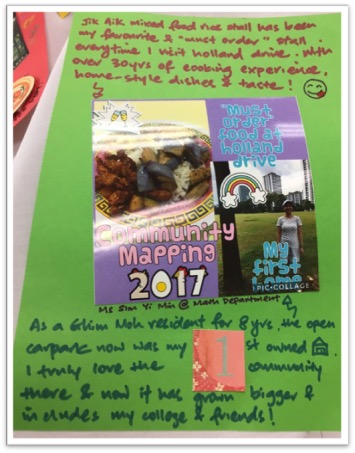 Jik Aik mixed food rice stall has been
my favourite & "must order" stall
everytime I visit holland drive. With
over 30yrs of cooking experience,
home-style dishes & taste!
"Must
order
food at
holland
drive
Community
Mapping
2017
My
first
PIC•COLLAGE
Ms Sim Yi Min @ Math Department
As a Ghim Moh resident for 8 yrs, the open
carpark now was my 1st owned
I truly love the community
there & now it has grown bigger &
includes my college & friends!